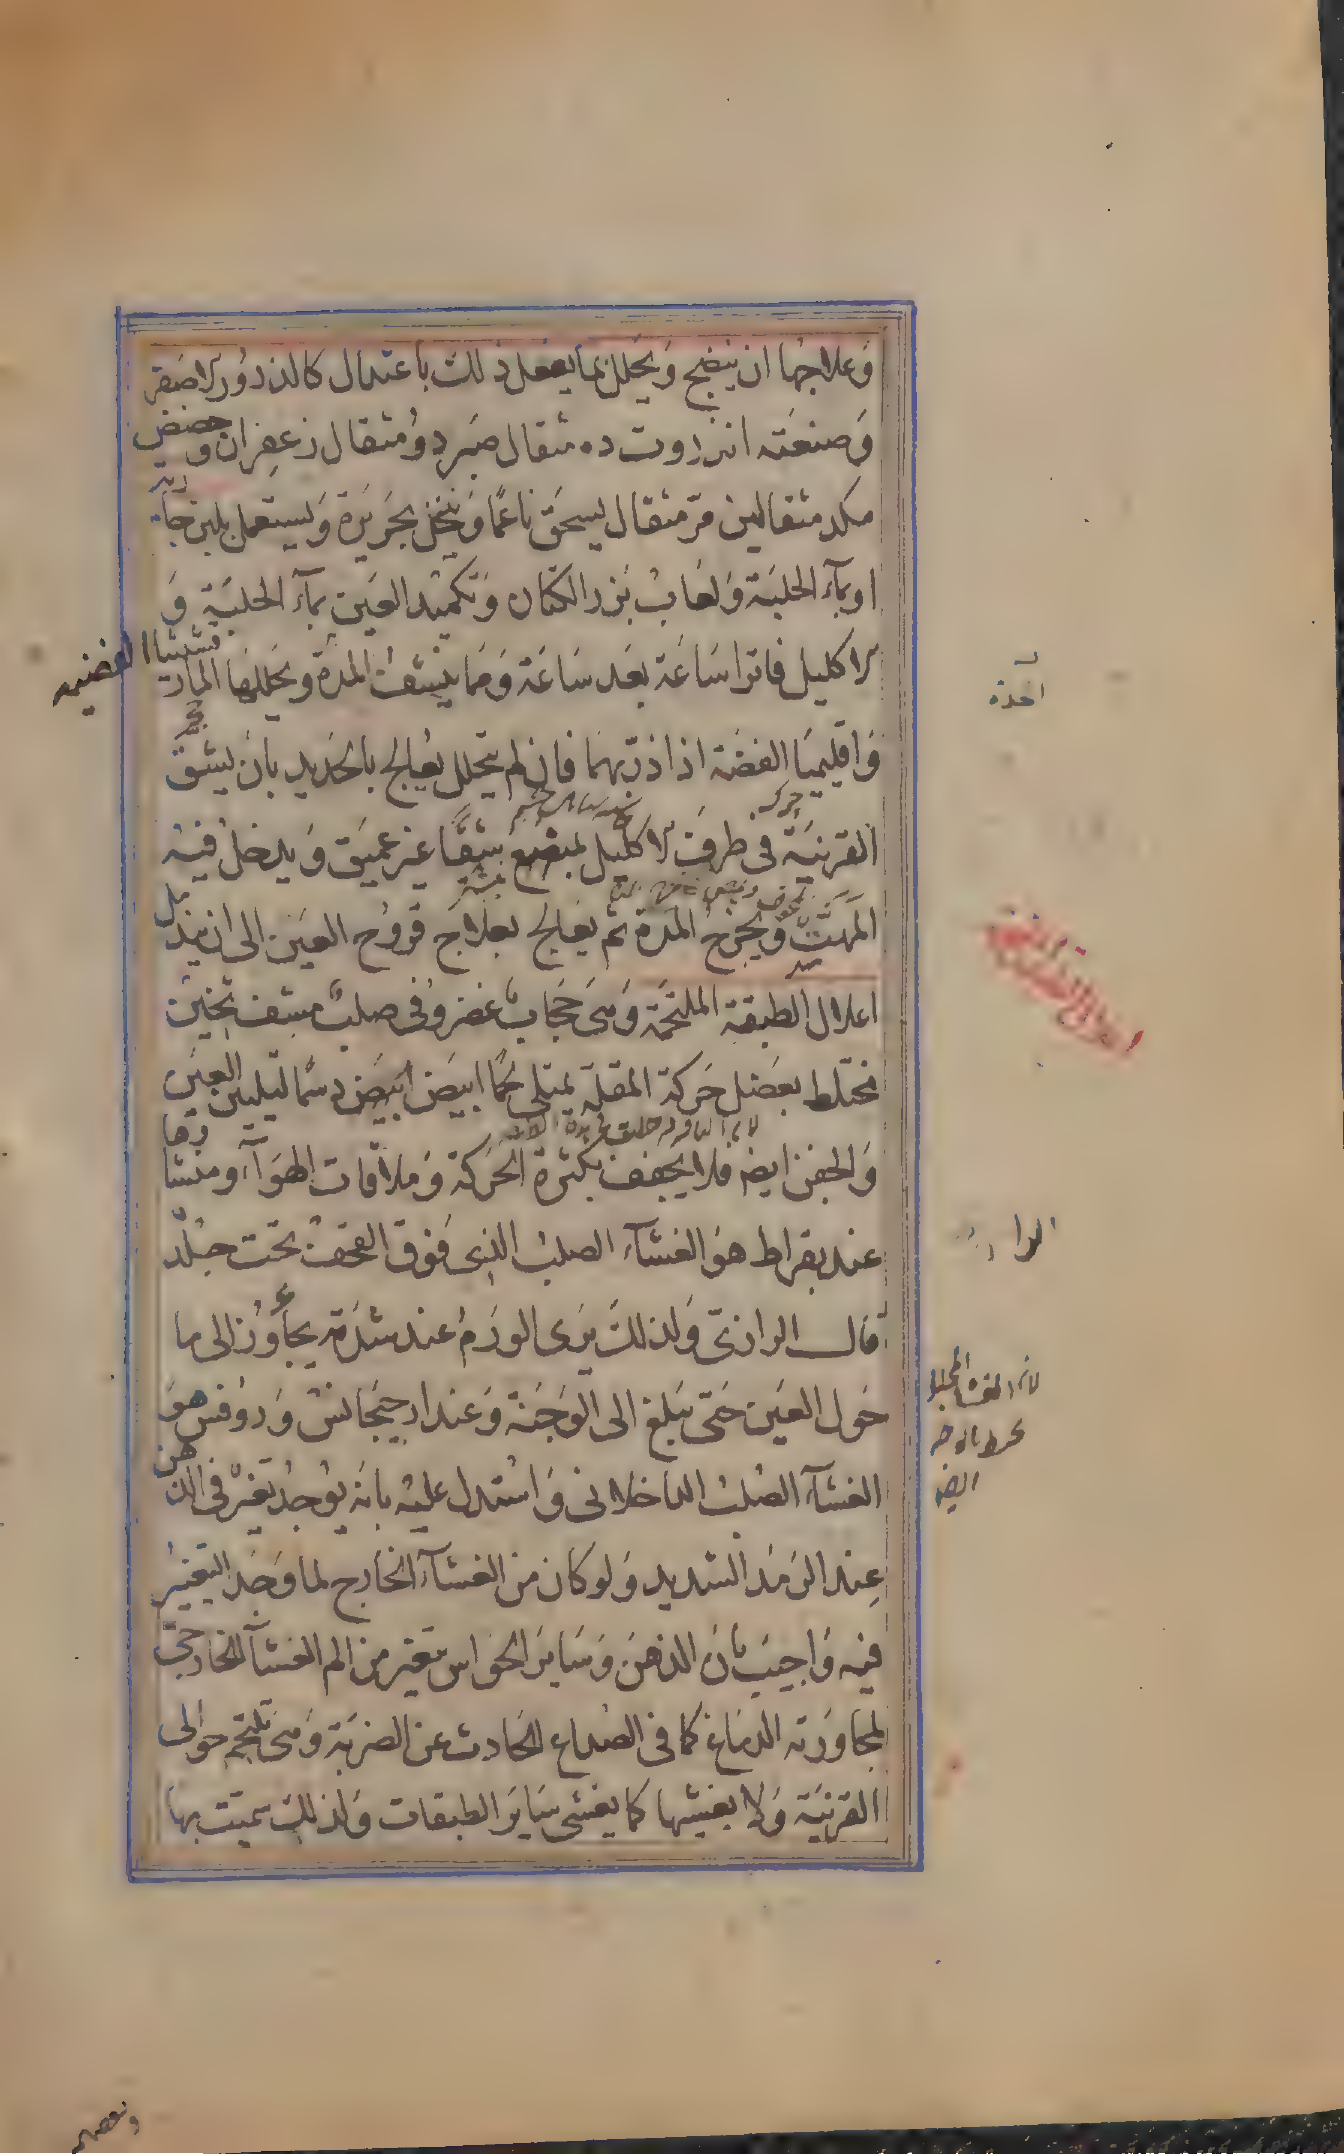 وعلاجها ان ينضج ويحلل بما يفعل ذلك باعتدال كالذرور الاصفر
وصنعته انزروت ده مثقال صبر دو مثقال زعفران و حضض
مكد مثقالين مر مثقال يسحق ناعما وينخل بحريرة ويستعمل بلبن جارية
او بماء الحلبة ولعاب بزر الكتان وتكميد العين بماء الحلبة و
الاكليل فاترا ساعة بعد ساعة ومما ينشف المدة ويحللها المارقشيشا الفضية
واقليميا الفضة اذا ذر بهما فان لم يتحلل يعالج بالحديد بان يشق
القرنية فى طرف الاكليل بمبضع شقا غير عميق ويدخل فيه
المهت ويخرج المدة ثم يعالج بعلاج قروح العين الى ان يندمل
اعلال الطبقة الملتحمة وهى حجاب غضروفى صلب مسف ثخين
مختلط بعضل حركة المقلة يمتلى لحما ابيض ابيض دسما ليلين العين
والجفن ايضه فلا يجفف بكثرة الحركة وملاقات الهواء ومنشاؤها
عند بقراط هو الغشاء الصلب الذى فوق القحف تحت جلد
قال الرازى ولذلك يرى الورم عند شدته يجاوز الى ما
حول العين حتى يبلغ الى الوجنة وعند ارجيجانس وروفس هو
الغشاء الصلب الداخلانى واستدل عليه بانه يوجد تغير فى الذهن
عند الرمد الشديد ولو كان من الغشاء الخارج لما وجد التغيير
فيه واجيب بان الذهن وساير الحواس يتغير من الم الغشاء الخارجى
لمجاورته الدماغ كما فى الصداع الحادث عن الضربة وهى تلتحم حوالى
القرنية ولا يغشيها كما يغشى ساير الطبقات ولذلك سميت بها